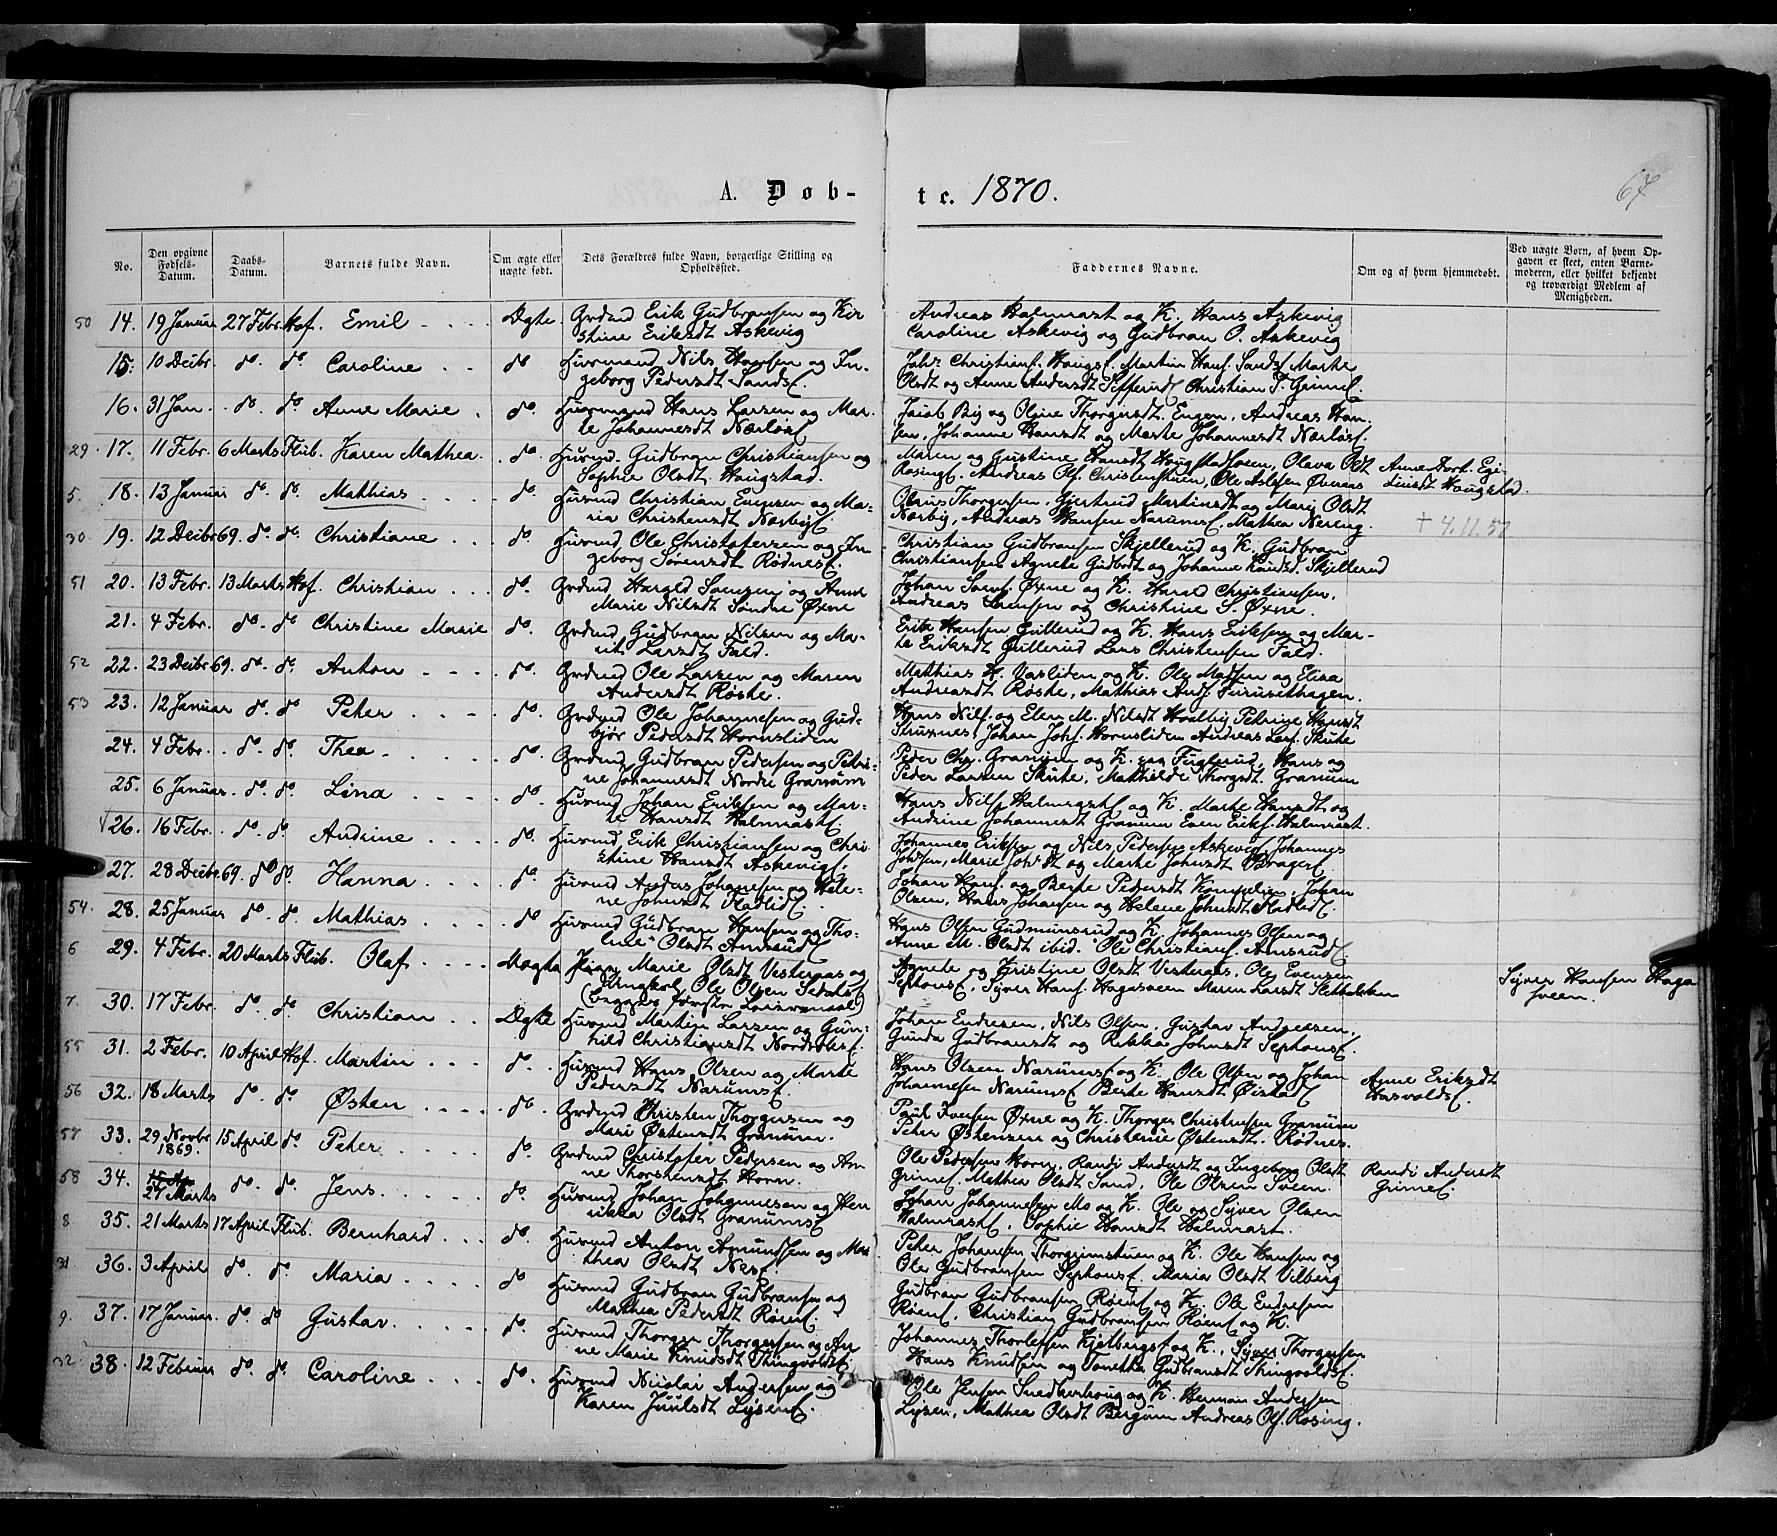 A. Døb-
te. 1870.
67
No.
Den opgivne Fødsels-Datum.
Daabs-Datum.
Barnets fulde Navn.
Om ægte eller uægte født.
Dets Forældres fulde Navn, borgerlige Stilling og Opholdssted.
Faddernes Navne.
Om og af hvem hjemmedøbt.
Ved uægte Børn, af hvem Opgaven er skeet, enten Barnemoderen, eller hvilket bekjendt og troværdigt Medlem af Menigheden.
50 14. 19 Januar 27 Febr. Hof. Emil Ægte Grdmd Erik Gudbransen og Kir-
stine Eriksdt Askevig
Andreas Halmrast og K. Hans Askevig
Caroline Askevig og Gudbran O. Askevig
15. 10 Decbr. do. do. Caroline do Huusmand Nils Hansen og In-
geborg Pedersdt Sands.
Christians. Haugs. Martin Hans. Sands. Marte
Olsdt og Anne Andersdt Christian T. Grime.
16. 31 Jan. do. do. Anne Marie do. Huusmand Hans Larsen og Mar-
te Johannesdt
Jacob Big og Oline Thorgersdt Engen, Andreas Han-
sen, Johanne Hansdt og Marte Johannesdt
29 17. 11 Febr. 6 Marts Flub. Karen Mathea do. Husmd. Gudbran Christiansen og
Sophie Olsdt Haugstad.
Maren og Gustine Hansdt Olava Odt
Rosing. Andreas Ols. Christenstuen, Ole Aslesen
Anne Dort. Egi-
Haugstad.
5. 18. 13 Januar do. do. Mathias do. Husmd Christian Evensen og Ma-
ria Christensdt Nørby
Olaus Thorgersen, Gjertrud Martinsdt og Mari Olsdt
Nørby, Andreas Hansen Narums. Mathea Nereng.
30. 19. 12 Decbr 69. do. do. Christiane do. Husmd Ole Christofersen og In-
geborg Sørensdt Rødnes.
Christian Gudbransen Skjellerud og K. Gudbran
Christiansen Agnete Gudbrdt og Johanne Skjellerud
† 4.11.57
51 20. 13 Febr. 13 Marts Hof. Christian do. Grdmd Harald Svensen og Anne
Marie Nilsdt Søndre Øxne
Johan Svens. Øxne og K. Harald Christiansen,
Andreas Svensen og Christine S. Øxne.
21. 4 Febr. do. do Christine Marie do. Grdmd Gudbran Nilsen og Ma-
rit Larsdt Fald.
Erik Hansen Gullerud og K. Hans Eriksen og Mar-
te Eriksdt Gullerud Lars Christensen Fald.
52 22. 23 Decbr 69. do. do. Anton do. Grdmd Ole Larsen og Maren
Andersdt Røste.
Mathias H. Vasliden og K. Ole Madsen og Elisa
Andreasdt Røste, Mathias And. Furusethagen.
53 23. 12 Januar do. do Peter do. Grdmd Ole Johannesen og Gud-
bjør Pedersdt Hornsliden
Hans Nils. og Elen M. Nilsdt Hvalby Petrine Hansdt
Struxnes, Johan Johs. Hornsliden Andreas Lars. Skute
24. 4 Febr. do. do. Thea do. Grdmd Gudbran Pedersen og Petri-
ne Johannesdt Nordre Granum
Peder Chr. Granum og K. Fuglerud, Hans og
Peder Larsen Skute, Mathilde Thorgsdt. Granum
25. 6 Januar. do. do. Lina do. Husmd Johan Eriksen og Mar-
te Hansdt Halmrast.
Hans Nils. Halmrast. og K. Marte Hansdt og
Andrine Johannesdt Granum Even Eriks. Halmrast.
26. 16 Febr. do. do. Andrine do. Husmd Erik Christiansen og Chri-
stine Hansdt Askevig.
Johannes Eriksen og Nils Pedersen Askevig, Johannes
Johssen, Marie Johsdt og Marte Johnsdt Brager.
27. 28 Decbr 69. do do. Hanna do. Husmd Anders Johansen og Hele-
ne Johnsdt Fladlid.
Johan Hans. og Berte Pedersdt Johan
Olsen, Hans Johansen og Helene Johnsdt Fladlid.
54. 28. 25 Januar do. do. Mathias do Husmd Gudbran Hansen og Tho-
Olsdt Amsrud.
Hans Olsen Gudmunsrud og K. Johannes Olsen og
Anne M. Olsdt ibid. Ole Christians. Amsrud.
6 29. 4 Febr. 20 Marts Flub. Olaf Uægte Pigen Marie Olsdt Vesteraas og
Ungkarl Ole Olsen
(begges første Leiermaal)
Agnete og Kristine Olsdt Vesteraas, Ole Evensen
Sephons. Syver Hans. Hagasveen Maren Larsdt
Syver Hansen Haga
sveen.
7. 30. 17 Febr. do. do. Christian Ægte Husmd Martin Larsen og Gun-
hild Christiansdt
Johan Endresen, Nils Olsen, Gustav Andreasen,
Gunda Gudbransdt og Rikka Johnsdt Sephons.
55 31. 2 Febr. 10 April Hof. Martin do. Husmd Hans Olsen og Marte
Pedersdt Narums.
Hans Olsen Narums. og K. Ole Olsen og Johan
Johannesen Narums. Berte Hansdt
Anne Eriksdt
Hasvolds.
56 32. 18 Marts do. do. Østen do. Grdmd Christen Thorgersen og
Mari Østensdt Granum.
Paul Iversen Øxne og K. Thorger Christensen Granum
Peter Østensen og Christense Østensdt. Rødnes.
57 33. 29 Novbr
1869. 15 April do Peter do. Grdmd Christofer Pedersen og An-
ne Thorstensdt Horn.
Ole Pedersen Horn, Randi Andersdt og Ingeborg Olsdt
Grime. Mathea Olsdt Sand, Ole Olsen Sveen.
Randi Andersdt
Grime.
58 34. 15 Ap
27 Marts do. do. Jens do. Husmd Johan Johannesen og Hen-
rikka Olsdt Granums.
Johan Johannesen Mo og K. Ole og Syver Olsen
Halmrast. Sophie Hansdt Halmrast.
8 35. 21 Marts 17 April Flub. Bernhard do. Husmd Anton Amundsen og Ma-
thea Olsdt Nes.
Peter Johansen Thorgrimstuen og K. Ole Hansen og
Ole Gudbransen Sephons. Maria Olsdt Vilberg
31 36. 3 April do. do. Maria do Husmd Gudbran Gudbransen og
Mathea Pedersdt Røen.
Gudbran Gudbransen Røens og K. Ole Endresen
Røens. Christian Gudbransen Røens og K.
9. 37. 17 Januar. do do Gustav. do. Husmd Thorger Thorgersen og An-
ne Marie Knudsdt Thingvolds.
Johannes Thorlefsen Kjelbergs. og K., Syver Thorgersen
Hans Knudsen og Tonetta Gudbransdt Thingvolds.
32. 38. 12 Februar do. do. Caroline do. Husmd Nicolai Andersen og
Karen Juulsdt Lysen.
Ole Jensen Snedkerhaug og K. Herman Andersen
Lysen, Mathea Olsdt Bergum Andreas Ols. Rosing.